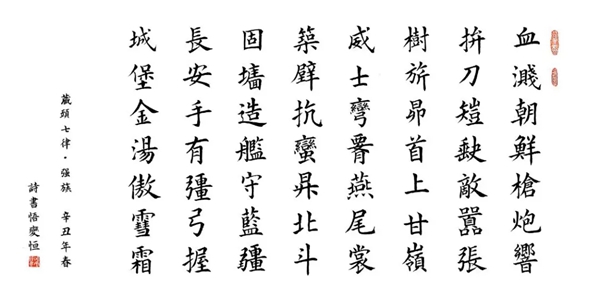 血濺朝鮮槍炮響
拚刀塏缺敵囂張
樹旂昴首上甘嶺
威士彎燕尾裳
築壁抗蠻北斗
固墻造艦守藍疆
長安手有彊弓握
城堡金湯傲雪霜
藏頭七律·強族 辛丑年春
詩書悟燮恒